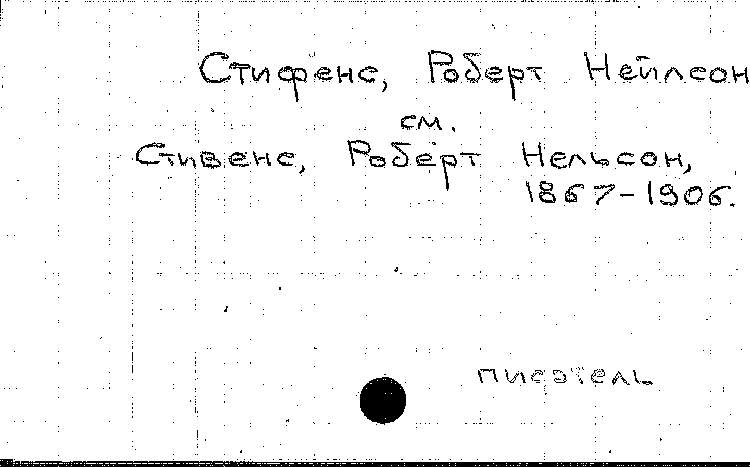 Стифенс, Роберт Нейлсон
см.
Стивенс, Роберт Нельсон,
1867-1906.
писатель